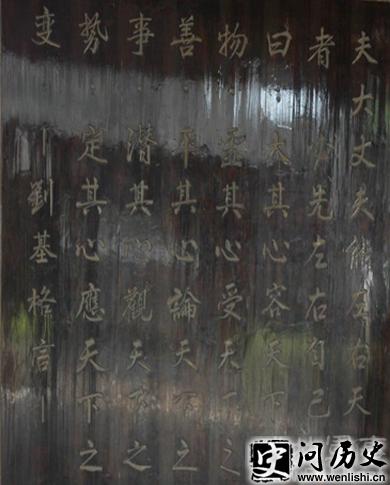 夫大丈夫能左右天
者必先左右自己
曰·大其心容天下
物·虚其心受天下之
善·平其心論天下之
事·潜其心觀天下之
勢·定其心應天下之
变 —劉基格言—
问历史
www.wenlishi.cn